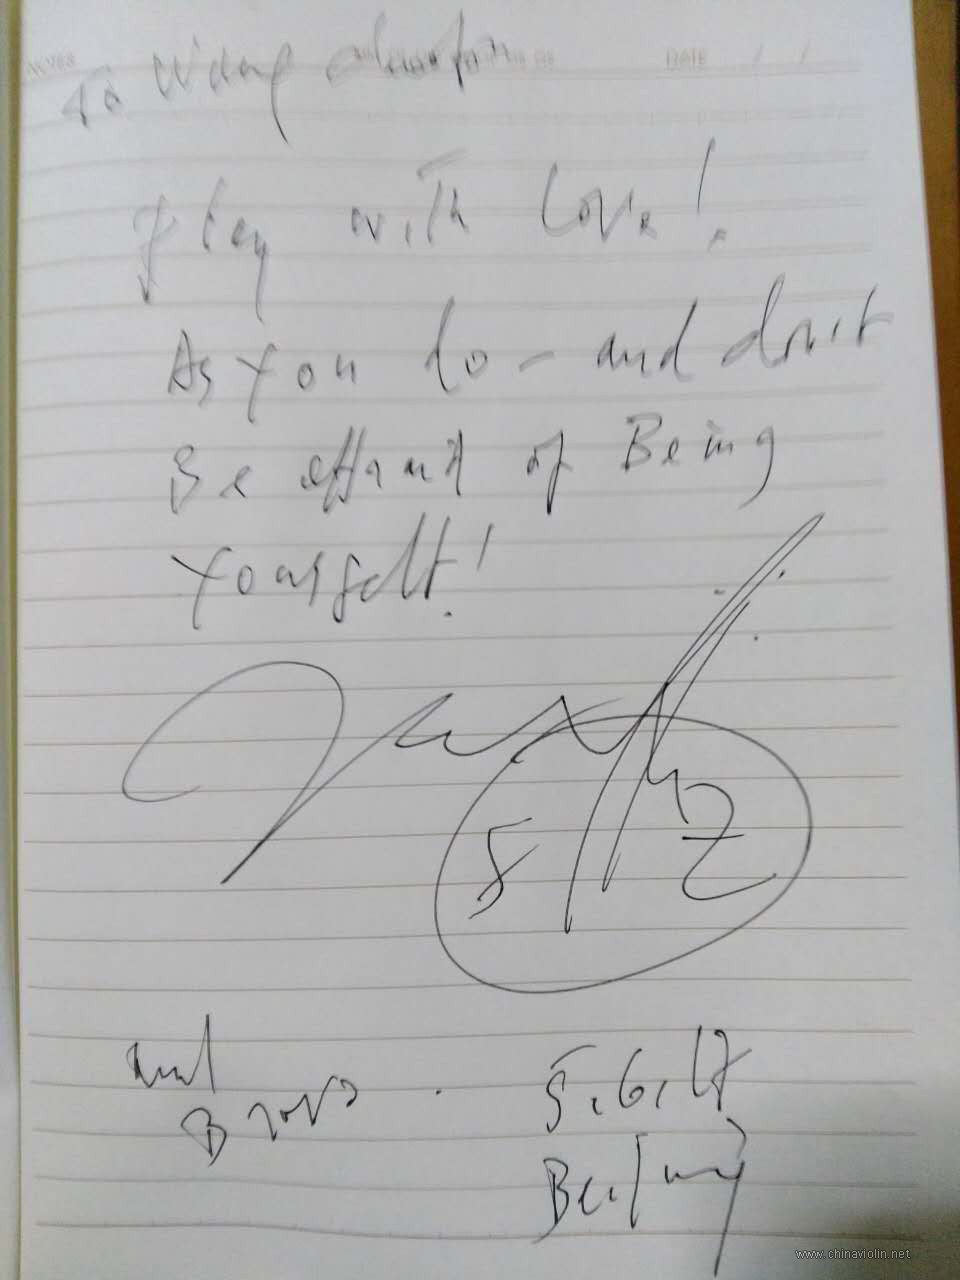 DATE / /
To Wang
play with Love!
As You do - and don't
Be affraid of Being
Yourself!
and
Bravo.
5.6.17
Beijing
www.chinaviolin.net